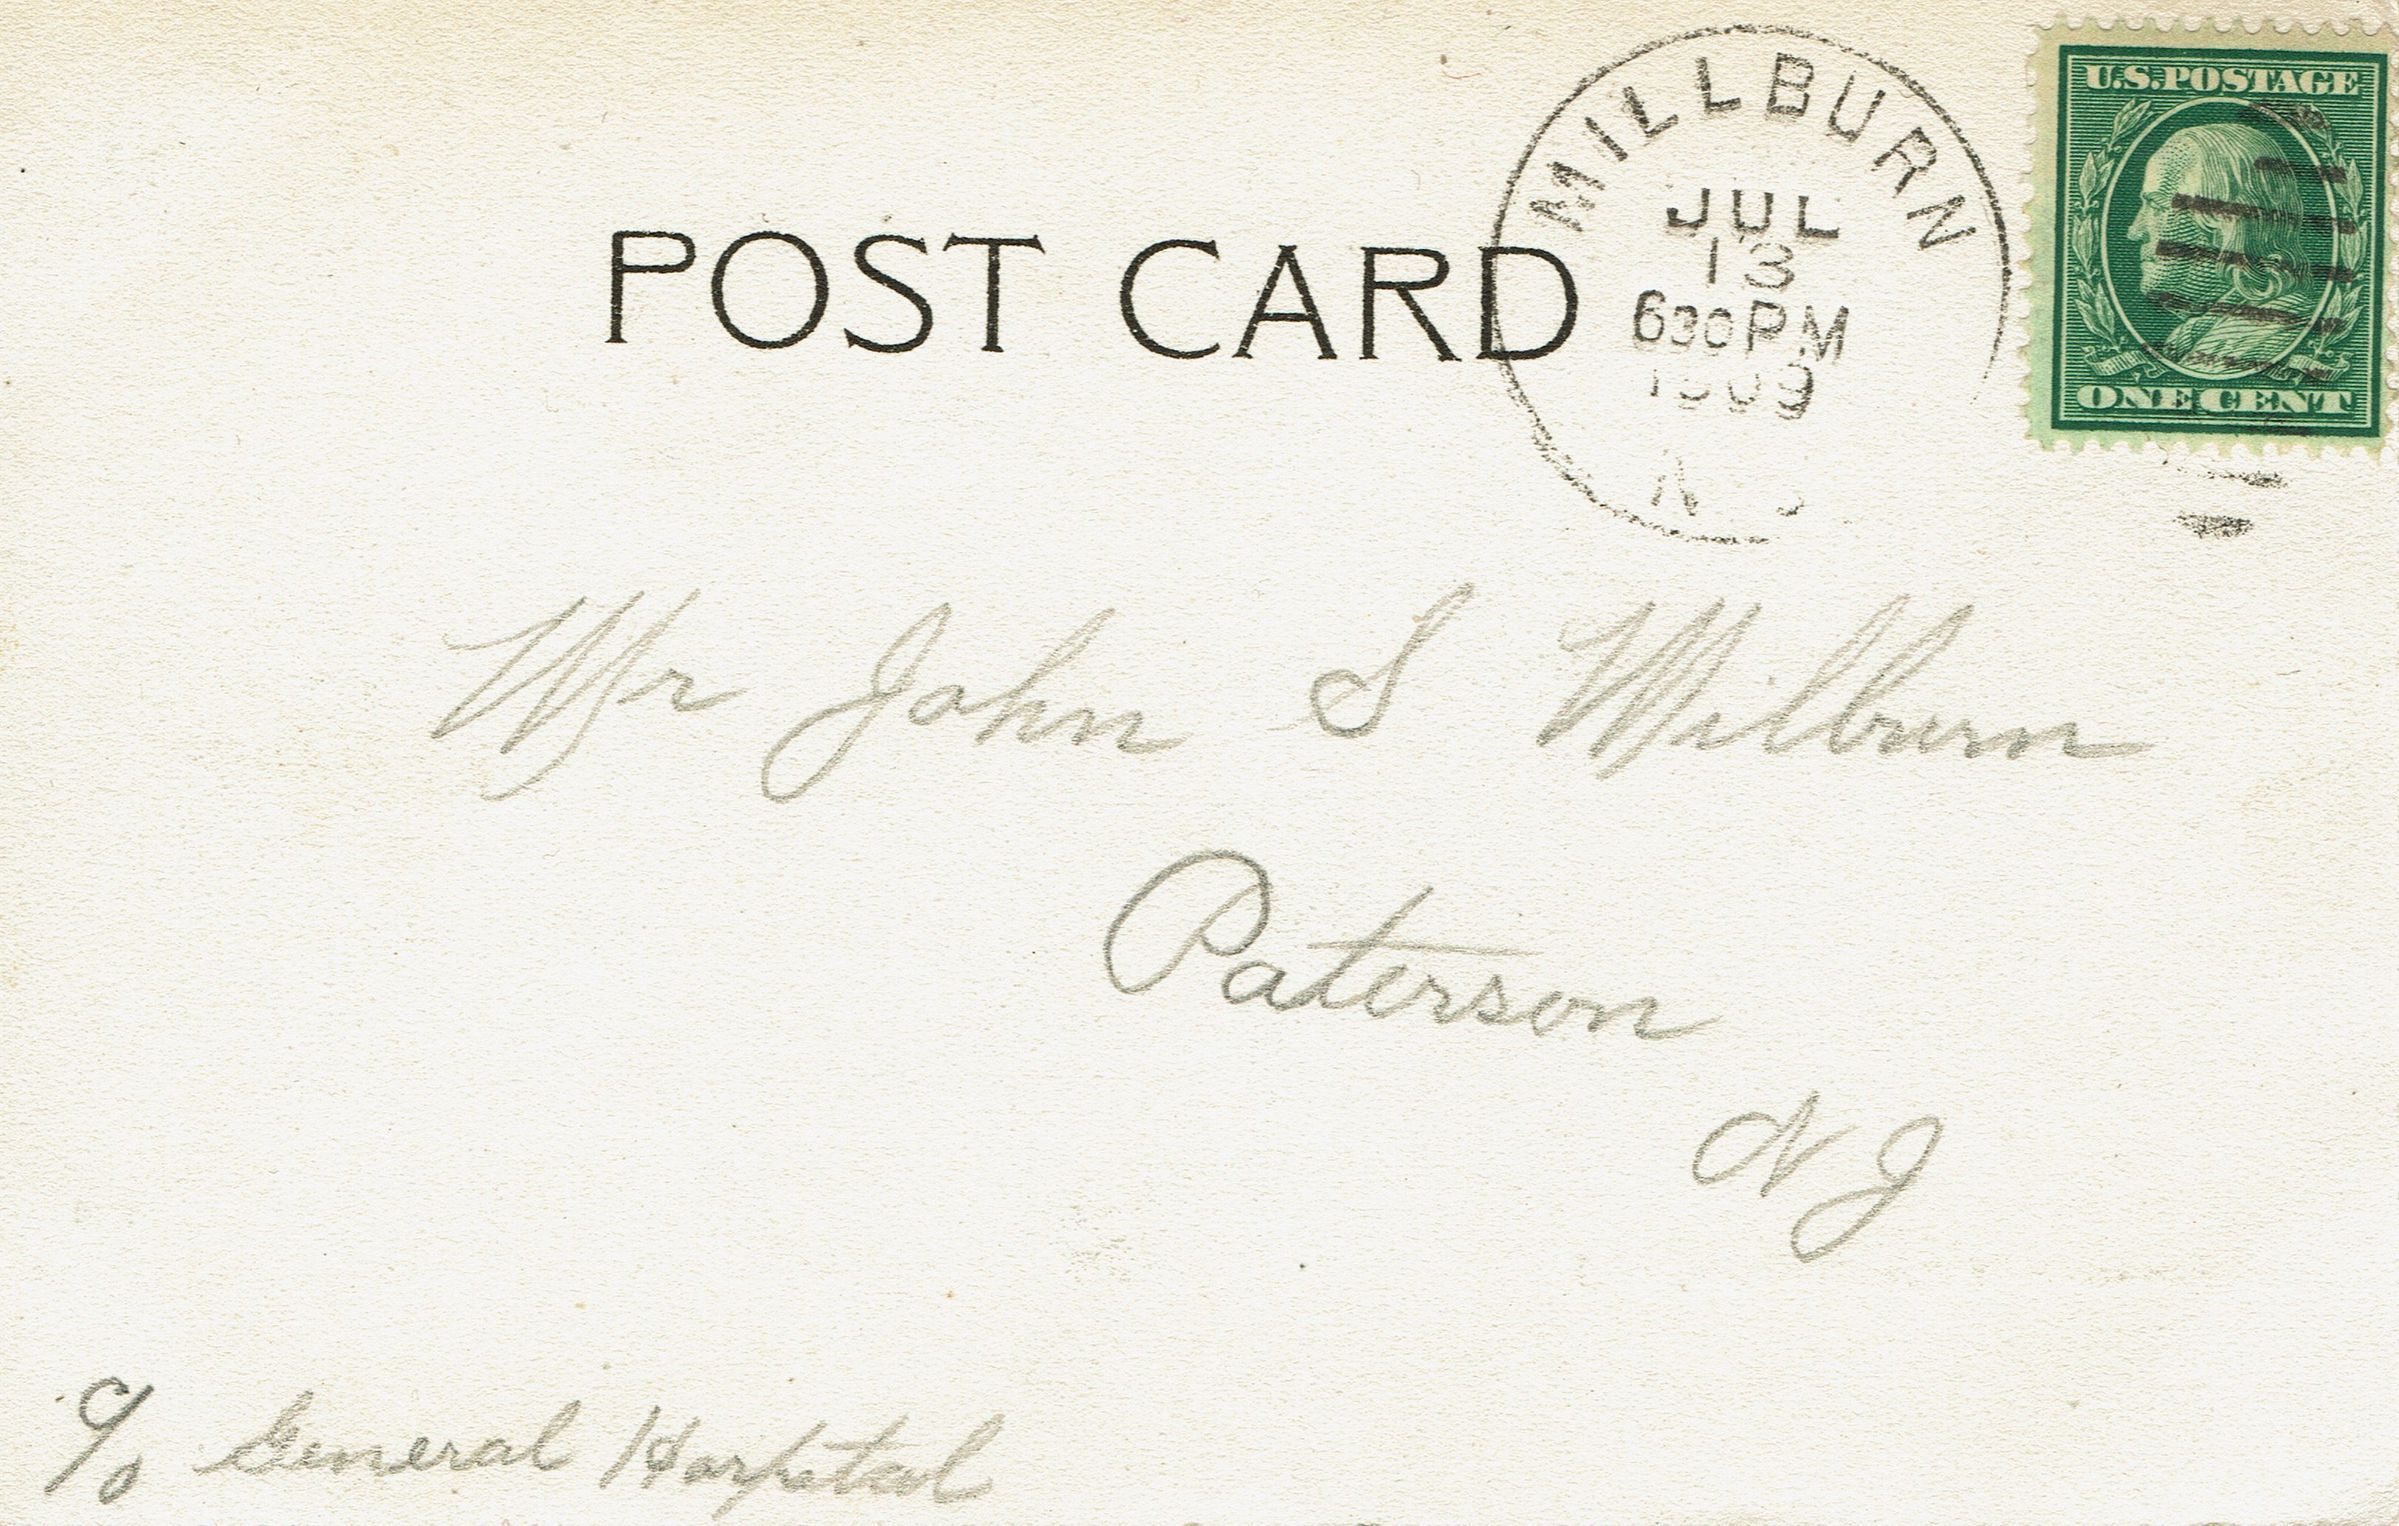 POST CARD
MILLBURN
JUL
13
630 PM
1909
N.J.
U.S. POSTAGE
ONE CENT
Mr John S Milburn
Paterson
N J
c/o General Hospital